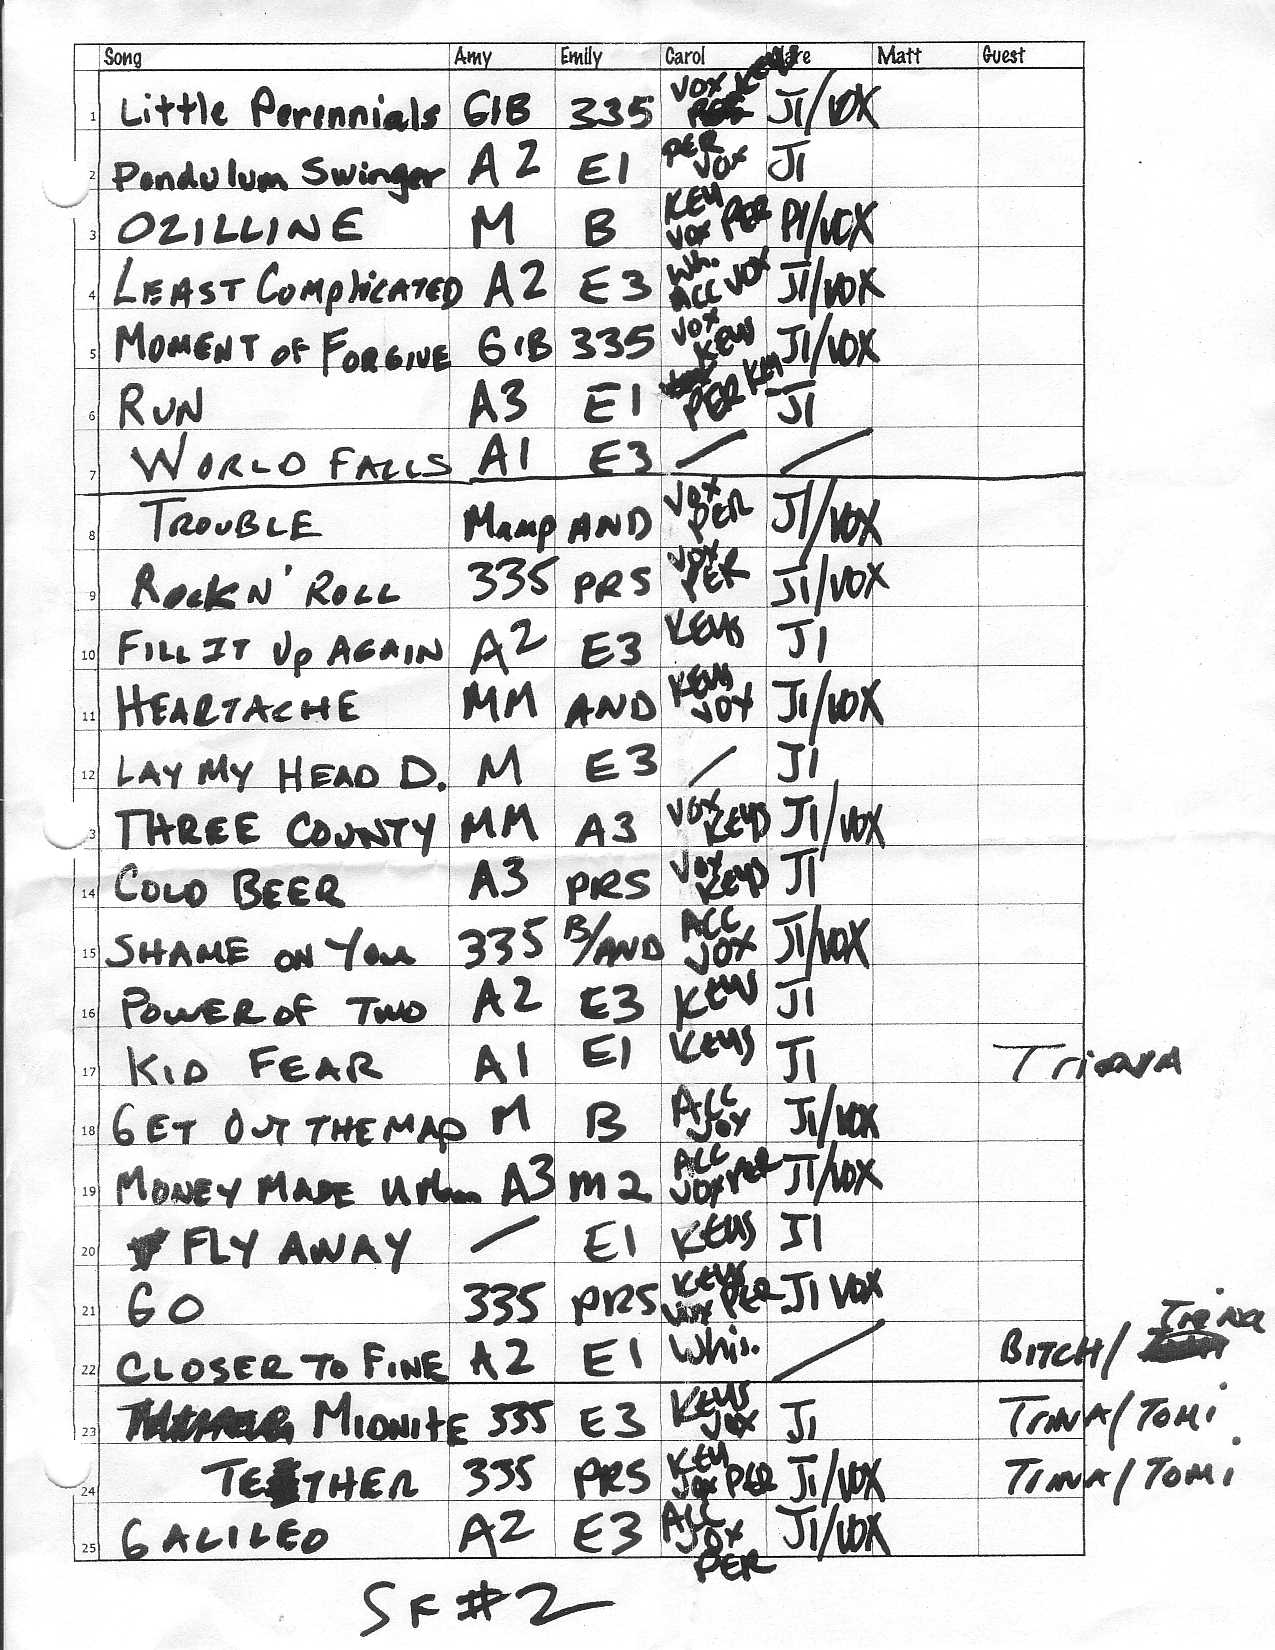 Song Amy Emily Carol Matt Guest
1 Little Perennials GIB 335 VOX KEYS JI/VOX
2 Pendulum Swinger A2 E1 PER VOX JI
3 OZILLINE M B KEY VOX PER PI/VOX
4 LEAST COMPLICATED A2 E3 Wh. ACC VOX JI/VOX
5 MOMENT OF FORGIVE GIB 335 VOX KEYS JI/VOX
6 RUN A3 E1 PER KEY JI
7 WORLD FALLS A1 E3 / /
8 TROUBLE Mamp AND VOX PER JI/VOX
9 ROCK N' ROLL 335 PRS VOX PER JI/VOX
10 FILL IT UP AGAIN A2 E3 KEYS JI
11 HEARTACHE MM AND KEYS VOX JI/VOX
12 LAY MY HEAD D. M E3 / JI
3 THREE COUNTY MM A3 VOX KEYS JI/VOX
14 COLD BEER A3 PRS VOX KEYS JI
15 SHAME ON YOU 335 B/AND ACC VOX JI/VOX
16 POWER OF TWO A2 E3 KEYS JI
17 KID FEAR A1 E1 KEYS JI
18 GET OUT THE MAP M B ACC VOX JI/VOX
19 MONEY MADE A3 M2 ACC VOX PER JI/VOX
20 FLY AWAY / E1 KEYS JI
21 GO 335 PRS KEYS VOX PER JI VOX
22 CLOSER TO FINE A2 E1 Whis. / BITCH/
23 MIDNITE 335 E3 KEYS VOX JI TRINA/TOMI
24 TETHER 335 PRS KEY VOX PER JI/VOX TRINA/TOMI
25 GALILEO A2 E3 ACC VOX PER JI/VOX
SF #2